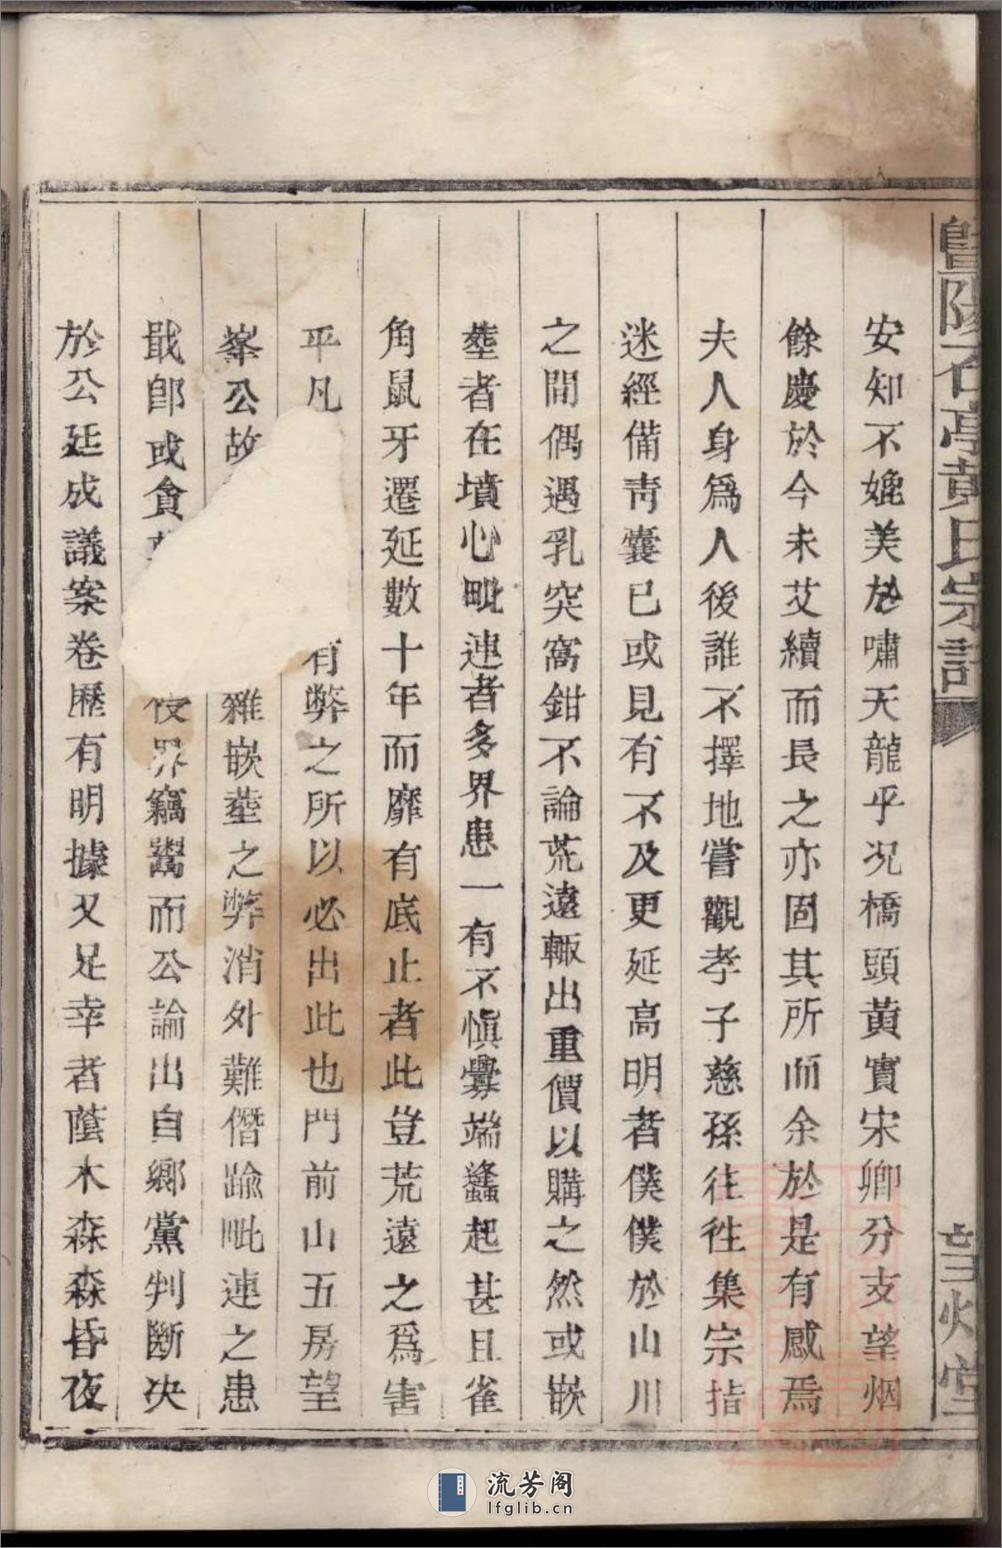 暨陽石亭黃氏宗譜
望烟堂
安知不媲美於嘯天龍乎况橋頭黃實宋卿分支望烟
餘慶於今未艾續而長之亦固其所而余於是有感焉
夫人身爲人後誰不擇地嘗觀孝子慈孫往徃集宗指
迷經備靑囊已或見有不及更延高明者僕僕於山川
之間偶遇乳突窩鉗不論荒遠輙出重價以購之然或嵌
塟者在墳心毗連者多界患一有不慎釁端蠭起甚且雀
角鼠牙遷延數十年而靡有底止者此豈荒遠之爲害
平凡
有弊之所以必出此也門前山五房望
峯公故
雜嵌塟之弊消外難僭踰毗連之患
戢卽或貪
侵界竊鬻而公論出自鄉黨判斷决
於公廷成議案卷歷有明據又足幸者蔭木森森昏夜
流芳阁
lfglib.cn